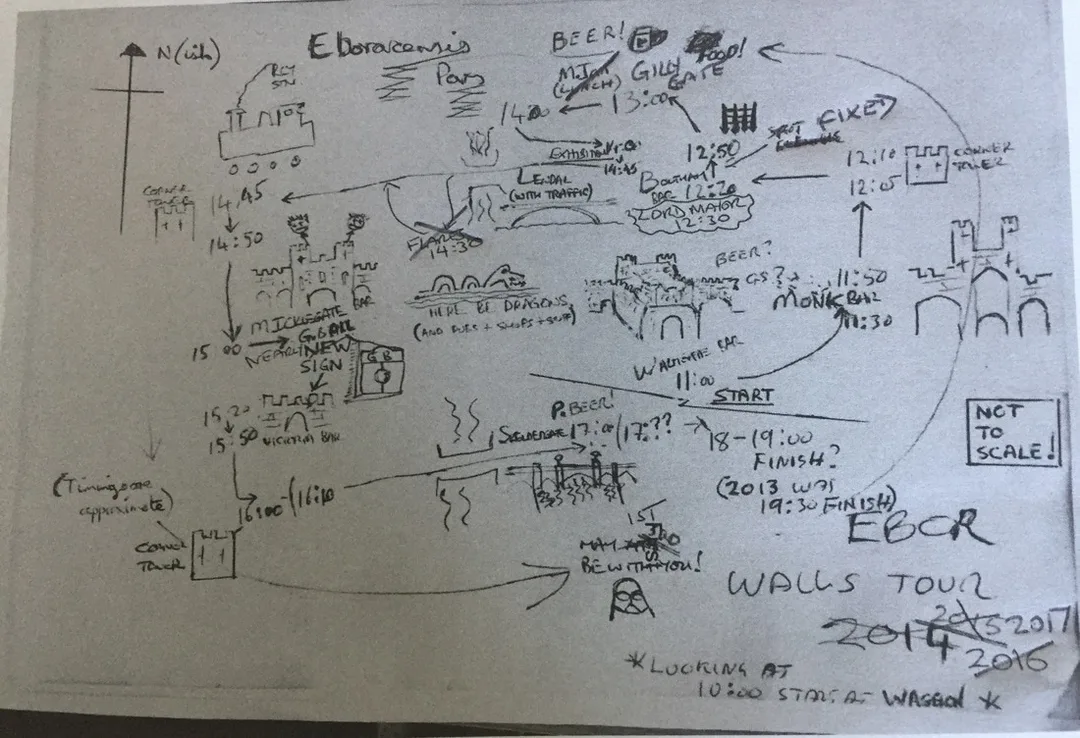 N (ish)
Eboracensis
Pons
RLY
STN
BEER!
FOOD!
GILLY
GATE
(LUNCH)
13:00
14:00
EXHIBITION
14:45
LENDAL
(WITH TRAFFIC)
12:50
BOOTHAM
BAR 12:20
LORD MAYOR
12:30
FIXE
12:10
12:05
CORNER
TOWER
CORNER
TOWER
14.45
14:50
FLARES
14:30
HERE BE DRAGONS
(AND PUBS + SHOPS + STUFF)
BEER?
GS?
11:50
MONK BAR
11:30
MICKLEGATE
BAR
15 00
NEARLY
NEW
SIGN
GB
WALMGATE BAR
11:00
START
15:20
15:50
VICTORIA BAR
P. BEER!
SKELDERGATE 17:00 (17:??
18-19:00
FINISH?
(2013 WAS
19:30 FINISH)
NOT
TO
SCALE!
(Timings are
approximate)
16:00 - (16:10
CORNER
TOWER
MAY
BE WITH YOU!
EBOR
WALLS TOUR
2014 2015 2017
2016
*LOOKING AT
10:00 START AT WAGGON *